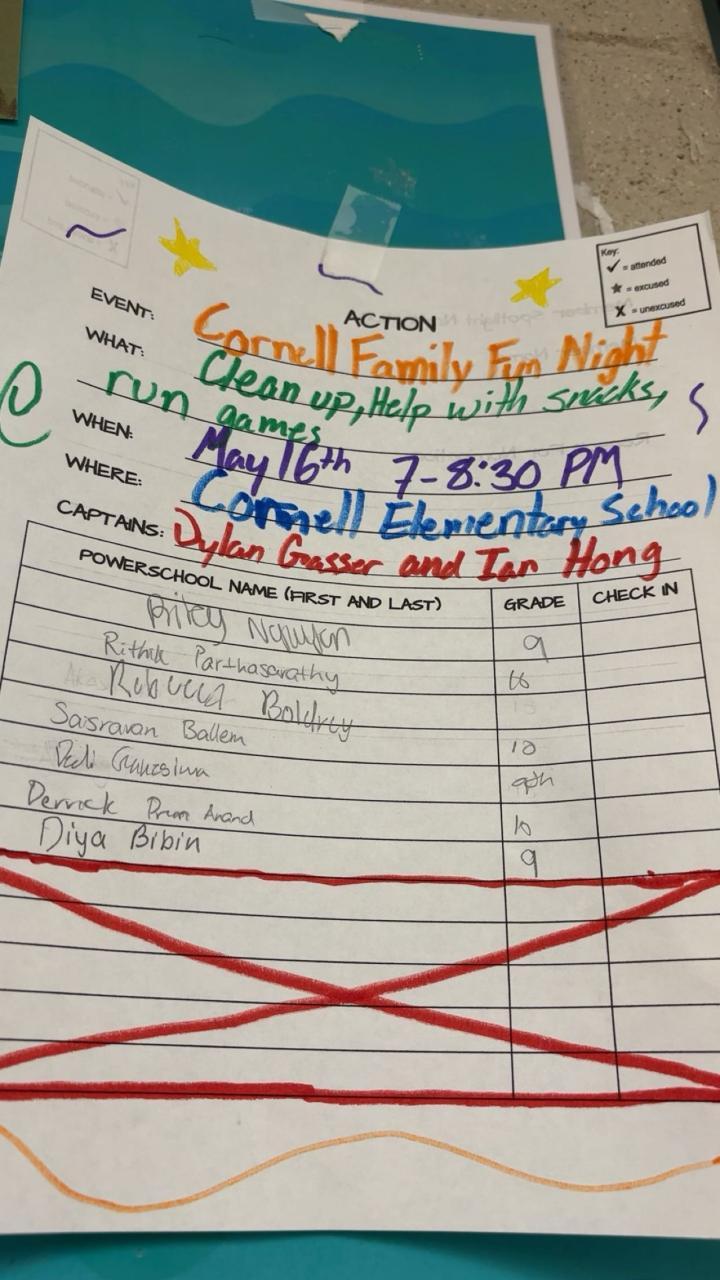 Key:
✓ = attended
★ = excused
X = unexcused
ACTION
EVENT: Cornell Family Fun Night
WHAT: Clean up, Help with snacks,
run games
WHEN: May 16th 7-8:30 PM
WHERE: Cornell Elementary School
CAPTAINS: Dylan Gasser and Ian Hong
POWERSCHOOL NAME (FIRST AND LAST) GRADE CHECK IN
Riley Nguyen 9
Rithik Parthasarathy
Rebecca Boldrey
Saisravan Ballem 10
9th
Derrick Prem Anand 10
Diya Bibin 9